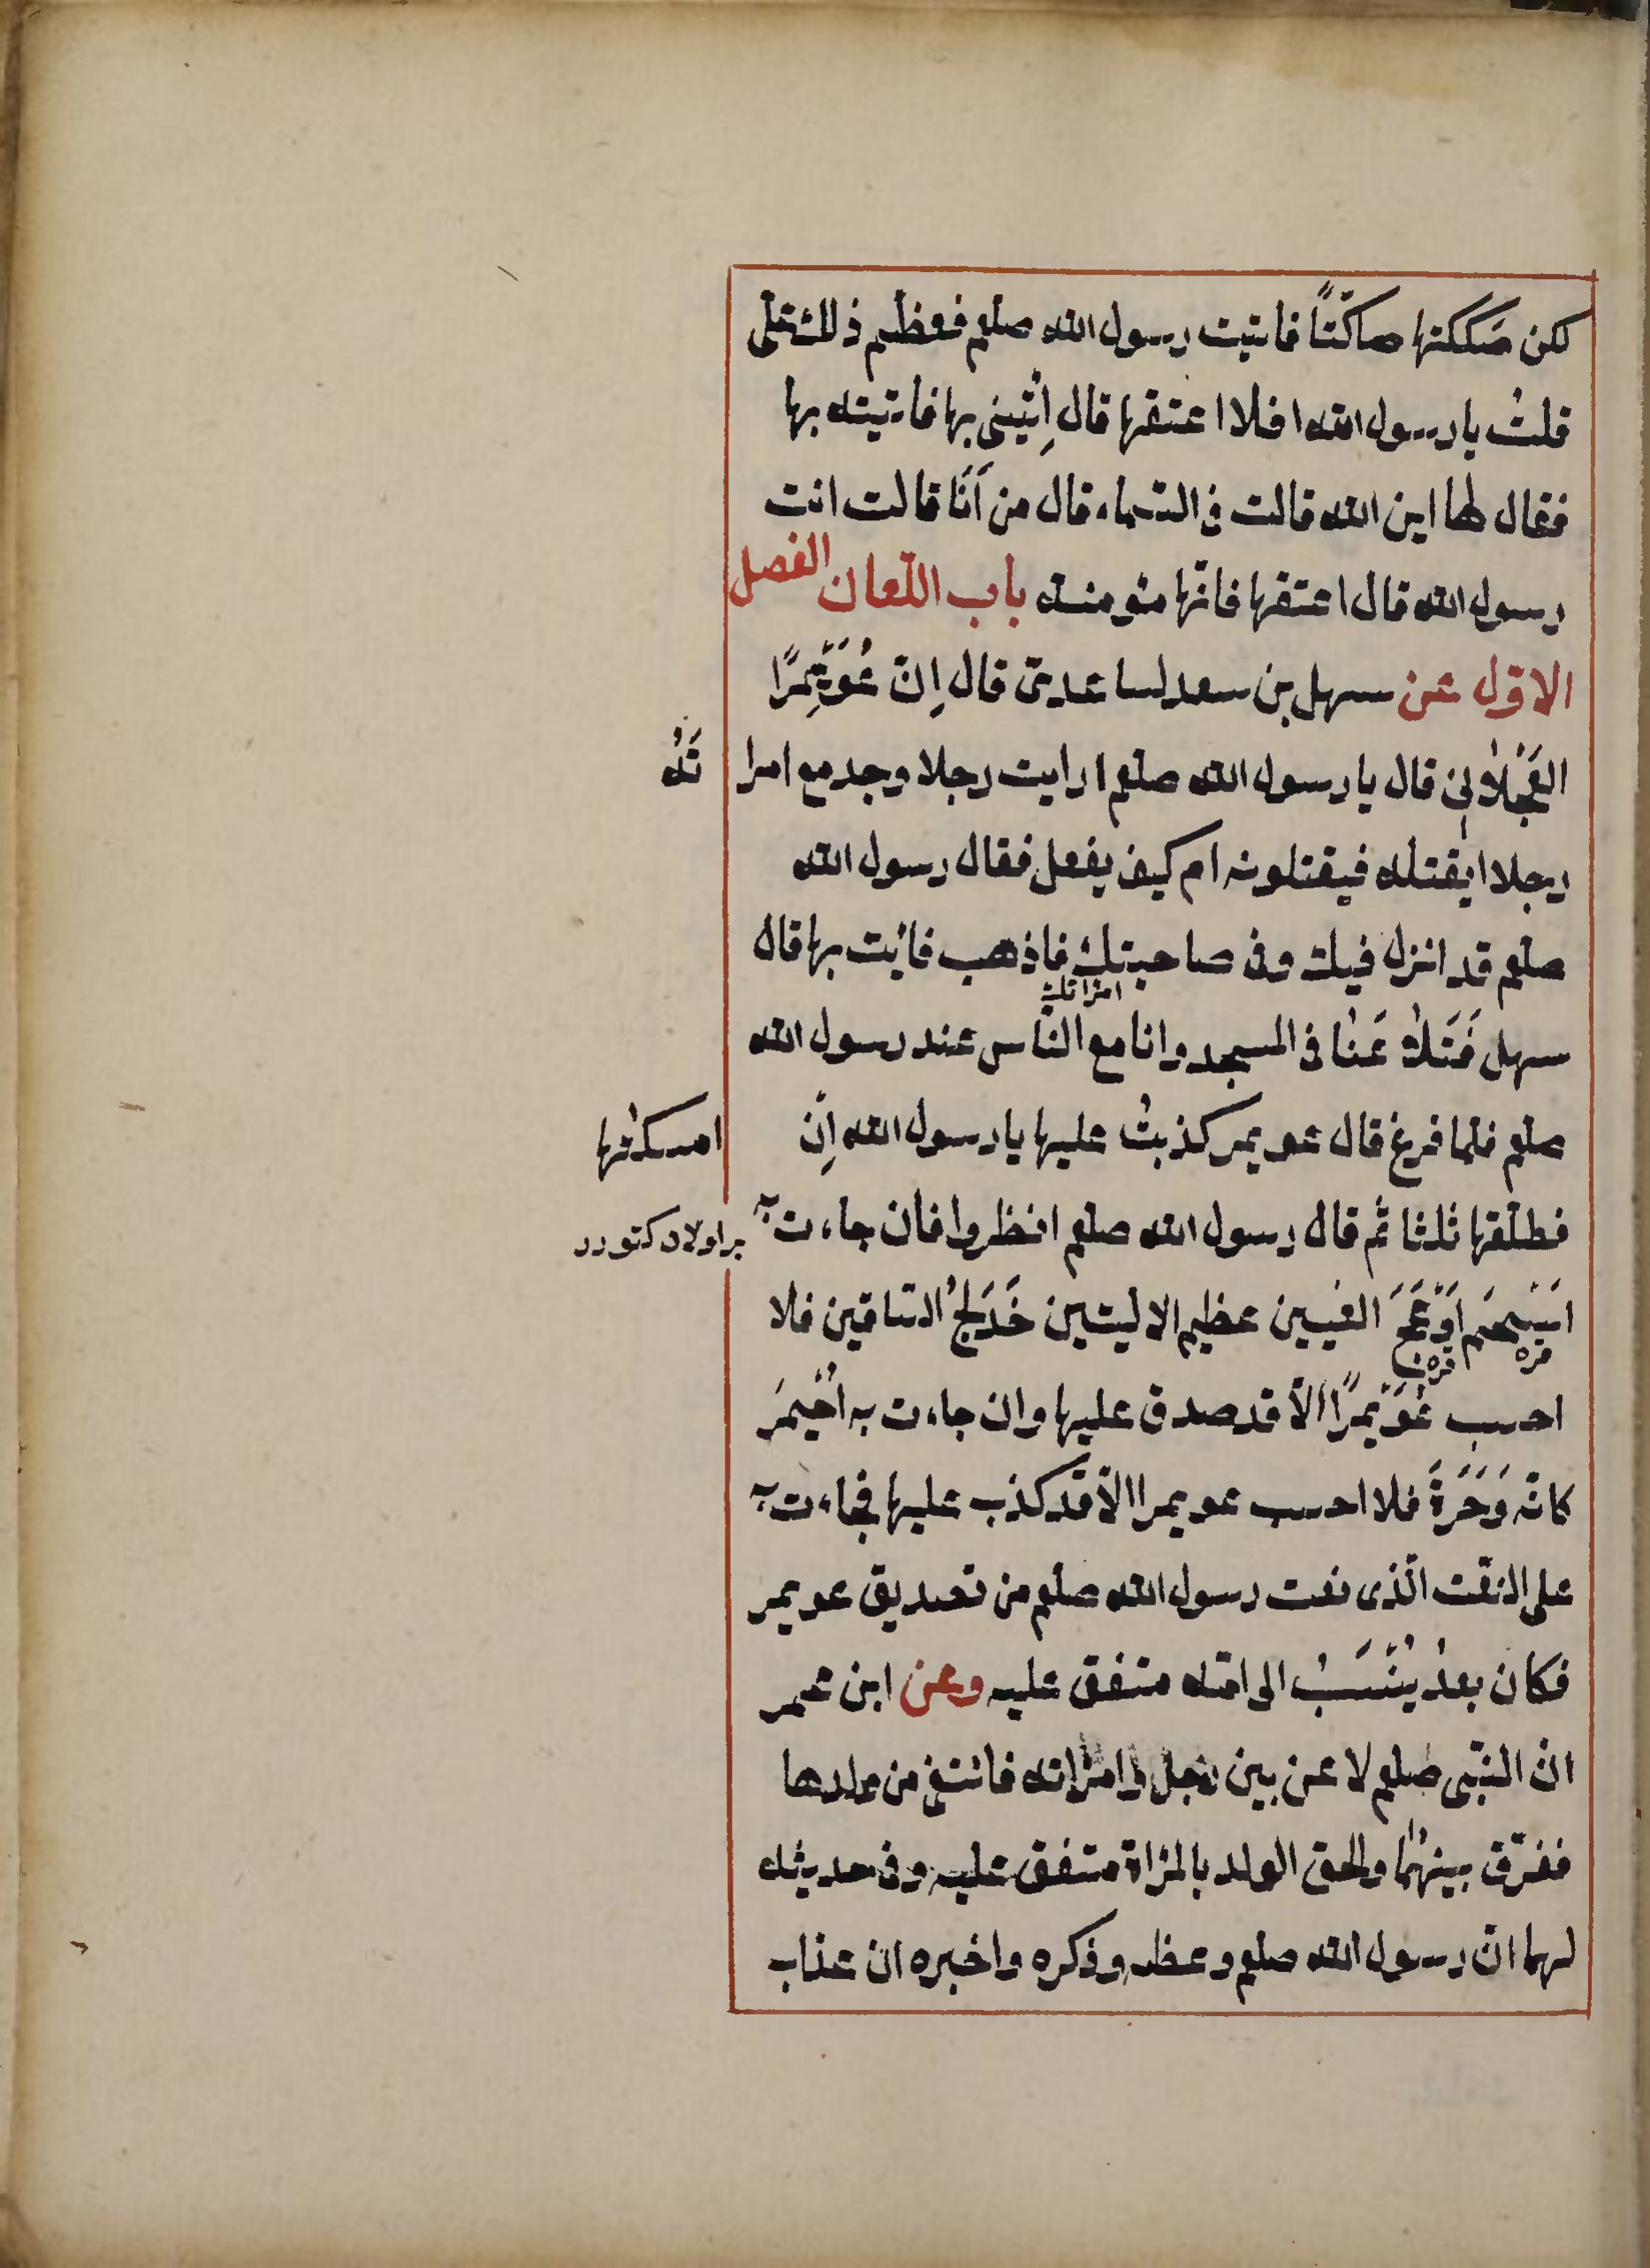 لكن صَككتها صاكّتاً فاتيت رسول الله صلعم فعظّم ذلك علىّ
قلتُ يا رسول الله افلا اعتقها قال اِئتينى بها فاتيته بها
فقال لها اين الله قالت فى السّماء قال من اَنَا قالت انت
رسول الله قال اعتقها فانّها مؤمنة باب اللّعان الفصل
الاوّل عن سهل بن سعد لساعدىّ قال اِنّ عُوَيْمِرًا
العَجْلاٰنِىّ قال يا رسول الله صلعم ارايت رجلا وجد مع امرا تَهُ
رجلا ايقتلُه فيقتلونه ام كيف يفعل فقال رسول الله
صلعم قد انزل فيك وفى صاحبتك فاذهب فائت بها قال
امراتك
سهل فَتَلاٰعَنٰا فى المسجد وانا مع النّاس عند رسول الله
صلعم فلما فرغ قال عويمر كذبتُ عليها يا رسول الله اِنْ امسكتُها
فطلّقها ثلثا ثم قال رسول الله صلعم انظروا فان جاءت به
بر اولاد كتورر
اَسْحَمَ اَدْعَجَ العينين عظيم الاليتين خَدَلَّجُ السّاقين فلا
قره قره
احسب عُوَيْمِرًا الّا قد صدق عليها وان جاءت به اُحَيْمِرَ
كانّه وَحَرَةً فلا احسب عويمرا الّا قد كذب عليها فجاءت به
على النّعت الّذى نعت رسول الله صلعم من تصديق عويمر
فكان بعدُ يُنْسَبُ الى امّه متفق عليه وعن ابن عمر
انّ النّبىّ صلعم لاعن بين رجل وامراته فانتفى من ولدها
ففرّق بينهُما والحق الولد بالمراة متفق عليه وفى حديثه
لهما انّ رسول الله صلعم وعظه وذكره واخبره ان عذاب